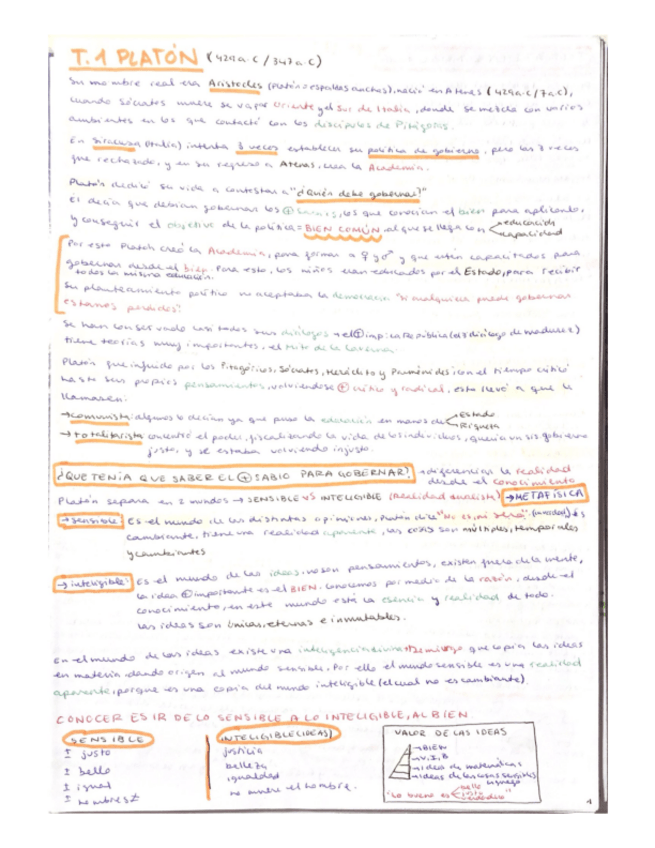 T.1 PLATÓN (429a.C / 347a.C)
Su nombre real era Aristocles (Platón = espaldas anchas), nació en Atenas (429a.C),
cuando Sócrates muere se va por Oriente y el Sur de Italia, donde se mezcla con varios
ambientes en los que contactó con los discípulos de Pitágoras.
En Siracusa (Italia) intenta 3 veces establecer su política de gobierno, pero las 3 veces
fue rechazado, y en su regreso a Atenas, crea la Academia.
Platón dedicó su vida a contestar a "¿Quién debe gobernar?"
Él decía que debían gobernar los + sabios, los que conocían el bien para aplicarlo,
y conseguir el objetivo de la política = BIEN COMÚN, al que se llega con
educación
capacidad
Por esto Platón creó la Academia, para formar a ♀ y ♂ y que estén capacitados para
gobernar desde el bien. Para esto, los niños eran educados por el Estado, para recibir
todos la misma educación.
Su planteamiento político no aceptaba la democracia "si cualquiera puede gobernar
estamos perdidos".
Se han conservado casi todos sus diálogos → el + imp: La República (el diálogo de madurez)
tiene teorías muy importantes, el mito de la caverna.
Platón fue influido por los Pitagóricos, Sócrates, Heráclito y Parménides, con el tiempo criticó
hasta sus propios pensamientos, volviéndose + crítico y radical, esto llevó a que le
llamasen:
→ comunista: algunos lo decían ya que puso la educación en manos de
Estado
Riqueza
→ totalitarista: concentró el poder, fiscalizando la vida de los individuos, quería un sis gobierno
justo, y se estaba volviendo injusto.
¿QUE TENIA QUE SABER EL + SABIO PARA GOBERNAR? → diferenciar la realidad
desde el conocimiento
Platón separa en 2 mundos → SENSIBLE VS INTELIGIBLE (realidad dualista) → METAFISICA
→ sensible: Es el mundo de las distintas opiniones, Platón dice "No es, ni será"
cambiante, tiene una realidad aparente, las cosas son múltiples, temporales
y cambiantes
→ inteligible: Es el mundo de las ideas, no son pensamientos, existen fuera de la mente,
la idea + importante es el BIEN. Conocemos por medio de la razón, desde el
conocimiento, en este mundo está la esencia y realidad de todo.
Las ideas son únicas, eternas e inmutables.
En el mundo de las ideas existe una inteligencia divina = Demiurgo que copia las ideas
en materia dando origen al mundo sensible. Por ello el mundo sensible es una realidad
aparente, porque es una copia del mundo inteligible (el cual no es cambiante).
CONOCER ES IR DE LO SENSIBLE A LO INTELIGIBLE, AL BIEN
SENSIBLE
± justo
± bello
± igual
± hombres ≠
INTELIGIBLE (IDEAS)
justicia
belleza
igualdad
no muere el hombre.
VALOR DE LAS IDEAS
→ BIEN
→ V, J, B
→ ideas de matemáticas
→ ideas de las cosas sensibles
"Lo bueno es
bello
justo
verdadero"